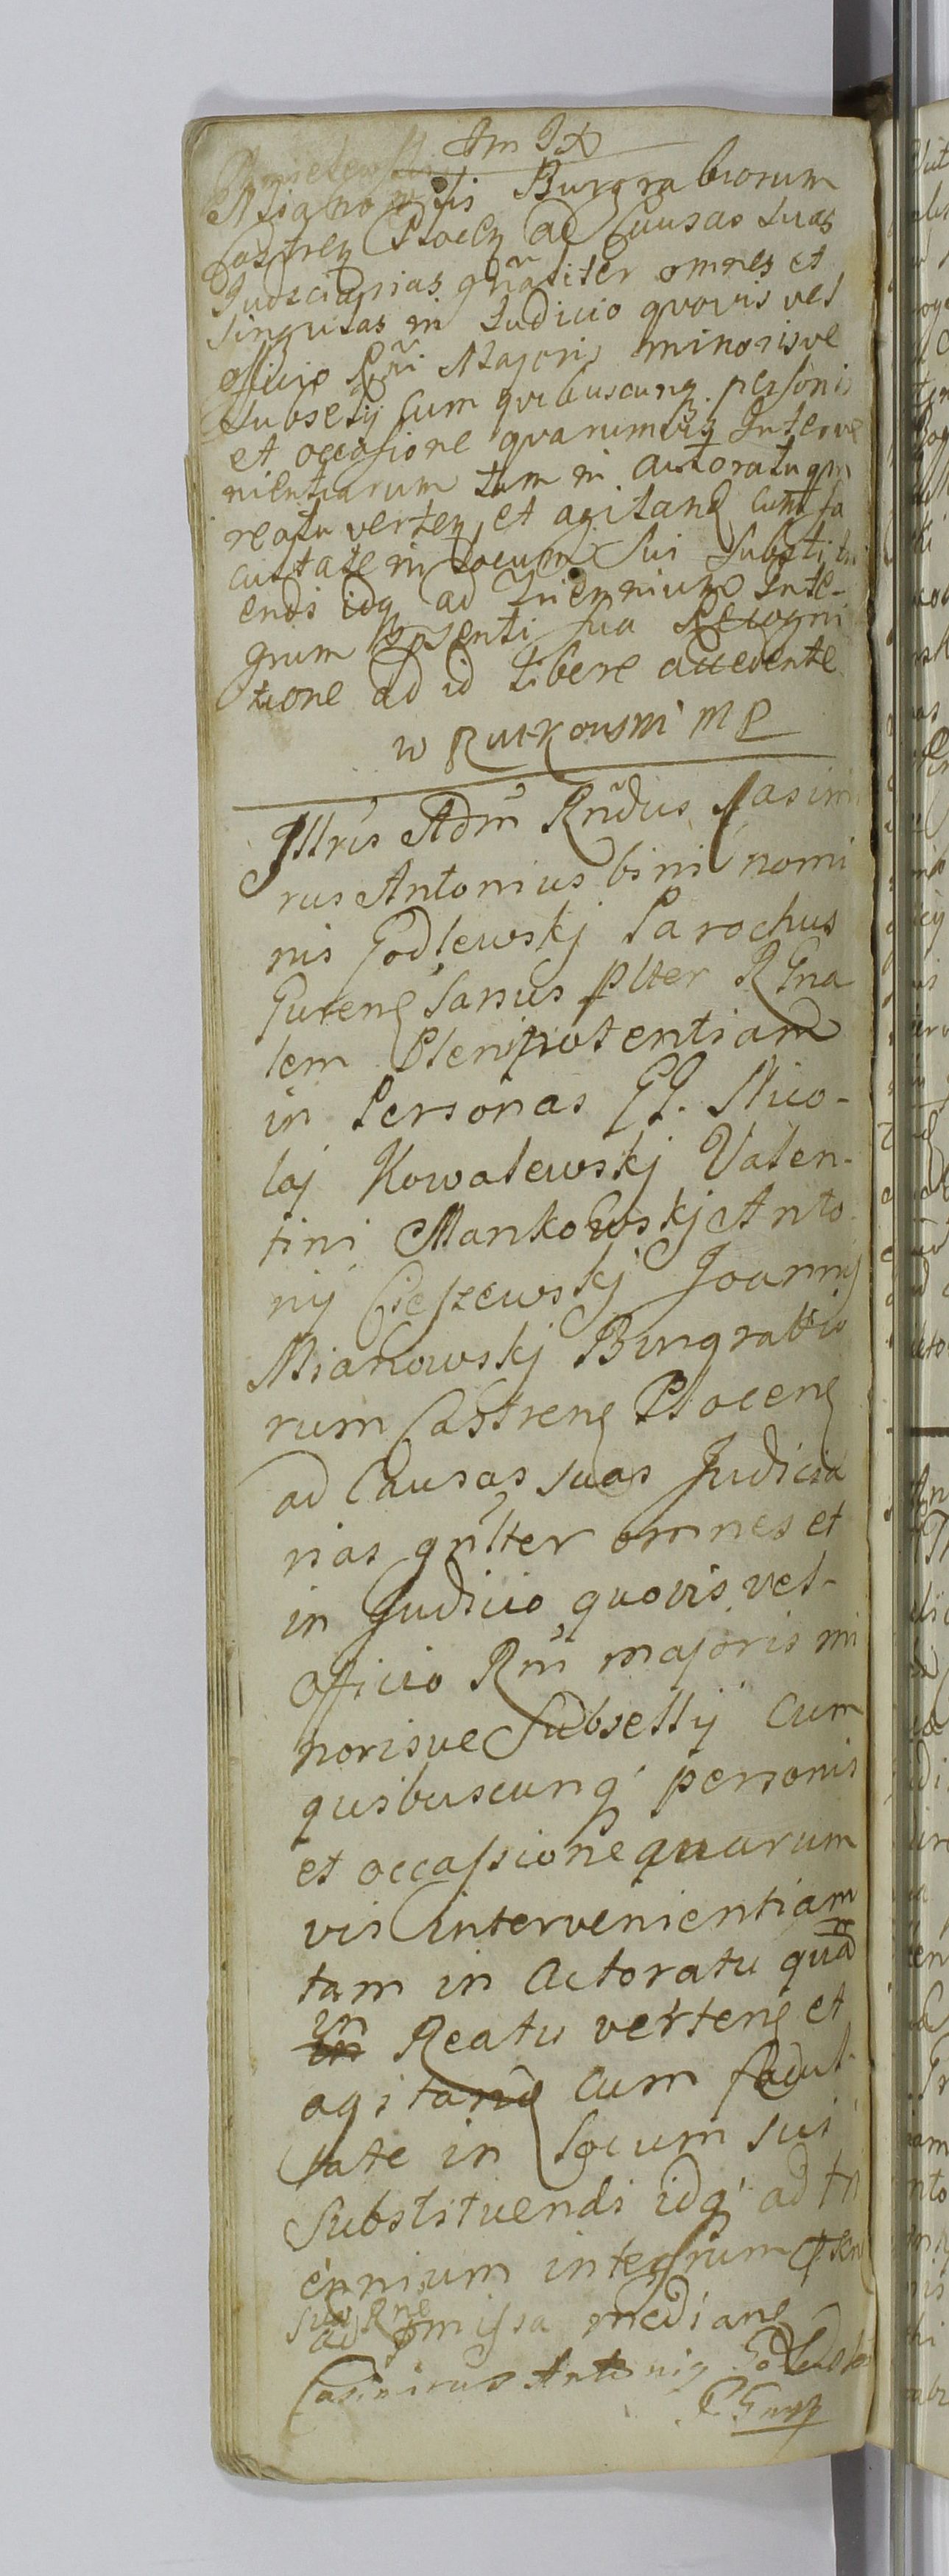 Mianowskis Burgrabiorum
Castren Plocen ad Causas suas
Judiciarias gnãliter omnes et
singulas in Judicio quovis vel
officio Rni Majoris minorisve
Subselij cum quibuscunq personis
et occasione quarumvis Interve
nientiarum tam in actoratu qm
reatu verten et agitand cum fa
cultate in Locum sui Substitu
endi idq ad Triennium Inte-
grum psenti sua Recogni
tione ad id libere accedente
W Rutkowski MP
Illris Admi Rndus Casimi
rus Antonius bini nomi
nis Godlewskj Parochus
plter RGna
lem Plenipotentiam
in Personas GG. Nico-
laj Kowalewskj Valen-
tini Mankowskj Anto
nij Cieszewskj Joannis
Mianowskj Burgrabio
rum Castrens Plocens
ad Causas suas Judicia
rias gnlter omnes et
in Judicio quovis vel
Officio Rni majoris mi
norisve Subsellij cum
quibuscunq personis
et occassione quarum
vis intervenientiam
tam in Actoratu quã
in Reatu vertens et
agitand cum facul
tate in Locum sui
Substituendi idq ad tri
ennium integrum psen
sua Rne
ad pmissa mediane
Casimirus Antonig Godlewski